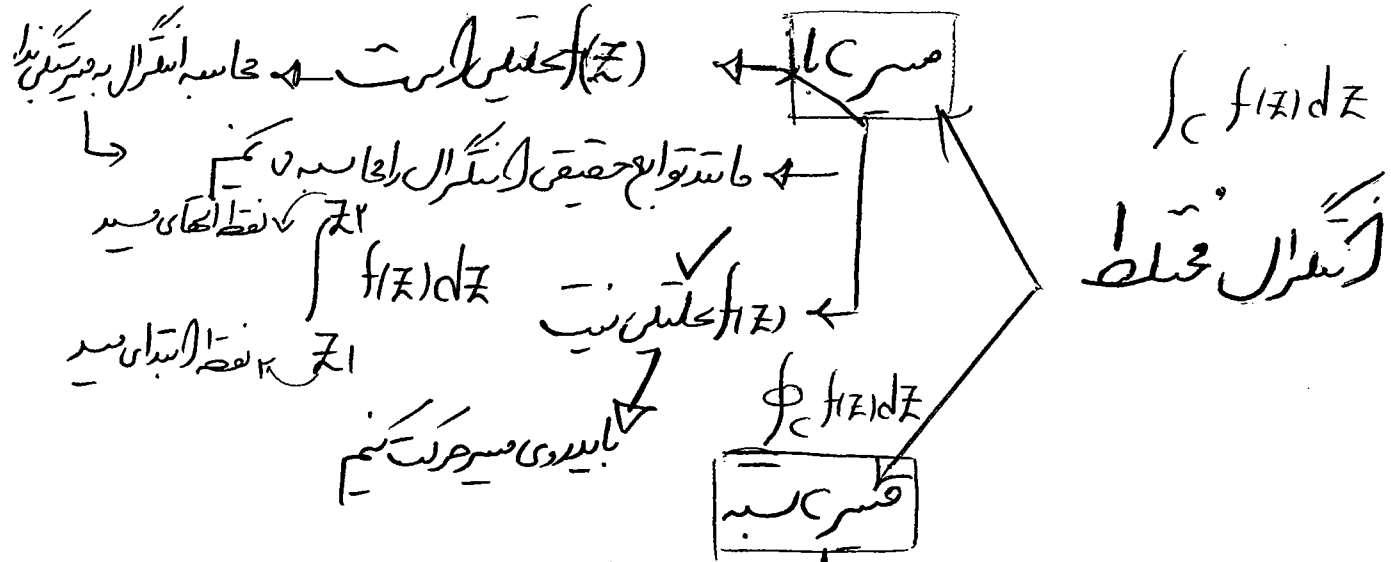 ∫_C f(z)dz
انتگرال مختلط
مسیر C باز
f(z) تحلیلی است
محاسبه انتگرال به مسیر بستگی ندارد
مانند توابع حقیقی انتگرال را محاسبه می‌کنیم
∫_{z1}^{z2} f(z)dz
نقطه انتهای مسیر
نقطه ابتدای مسیر
f(z) تحلیلی نیست ✓
باید روی مسیر حرکت کنیم
∮_C f(z)dz
مسیر C بسته